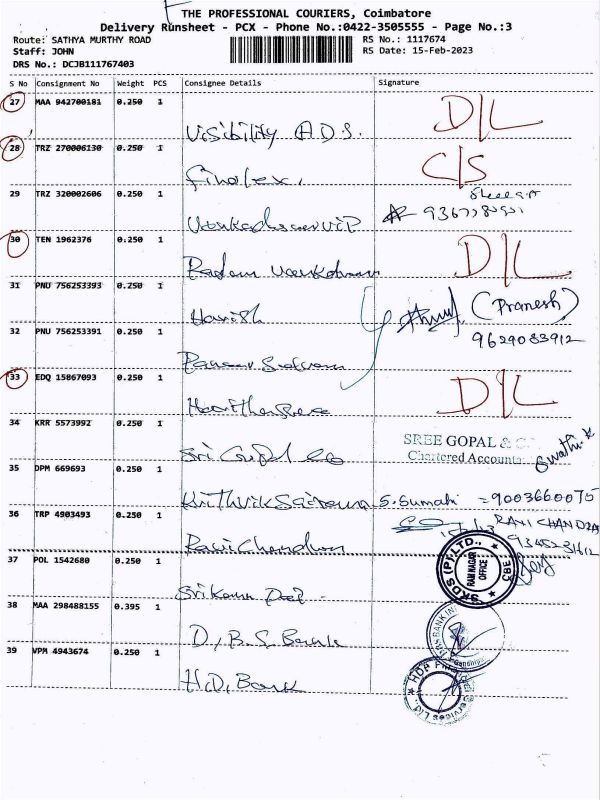 THE PROFESSIONAL COURIERS, Coimbatore
Delivery Runsheet - PCX - Phone No.:0422-3505555 - Page No.:3
Route: SATHYA MURTHY ROAD
RS No.: 1117674
Staff: JOHN
RS Date: 15-Feb-2023
DRS No.: DCJB111767403
S No Consignment No Weight PCS Consignee Details Signature
27 MAA 942700181 0.250 1 Visibility ADS. D/L
28 TRZ 270006130 0.250 1 Finolex. C/S
29 TRZ 320002606 0.250 1
30 TEN 1962376 0.250 1 D/L
31 PNU 756253393 0.250 1 Harish (Pranesh)
9629083912
32 PNU 756253391 0.250 1
33 EDQ 15867093 0.250 1 D/L
34 KRR 5573992 0.250 1 Sri Gopal co SREE GOPAL & Chartered Accounta Swathi.K
35 DPM 669693 0.250 1 S. Sumathi = 9003660075
36 TRP 4903493 0.250 1 Ravi Chandran RAVI CHANDRA
37 POL 1542680 0.250 1 SRDS (P) LTD., RAM NAGAR OFFICE CBE
38 MAA 298488155 0.395 1 D.B.S. Bank BANK
39 VPM 4943674 0.250 1 H.D. Bank HDB Services Ltd